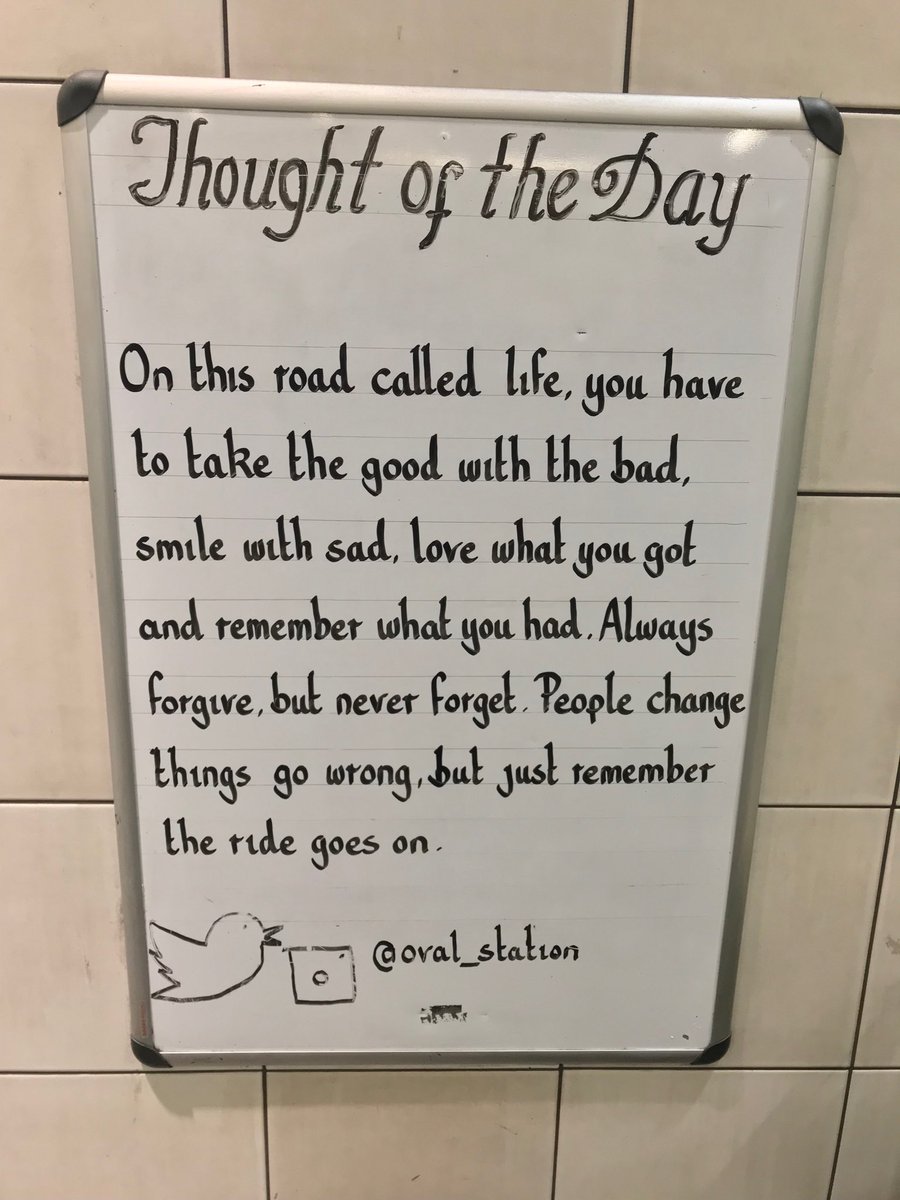 Thought of the Day
On this road called life, you have
to take the good with the bad,
smile with sad, love what you got
and remember what you had. Always
forgive, but never forget. People change
things go wrong, but just remember
the ride goes on.
@oval_station